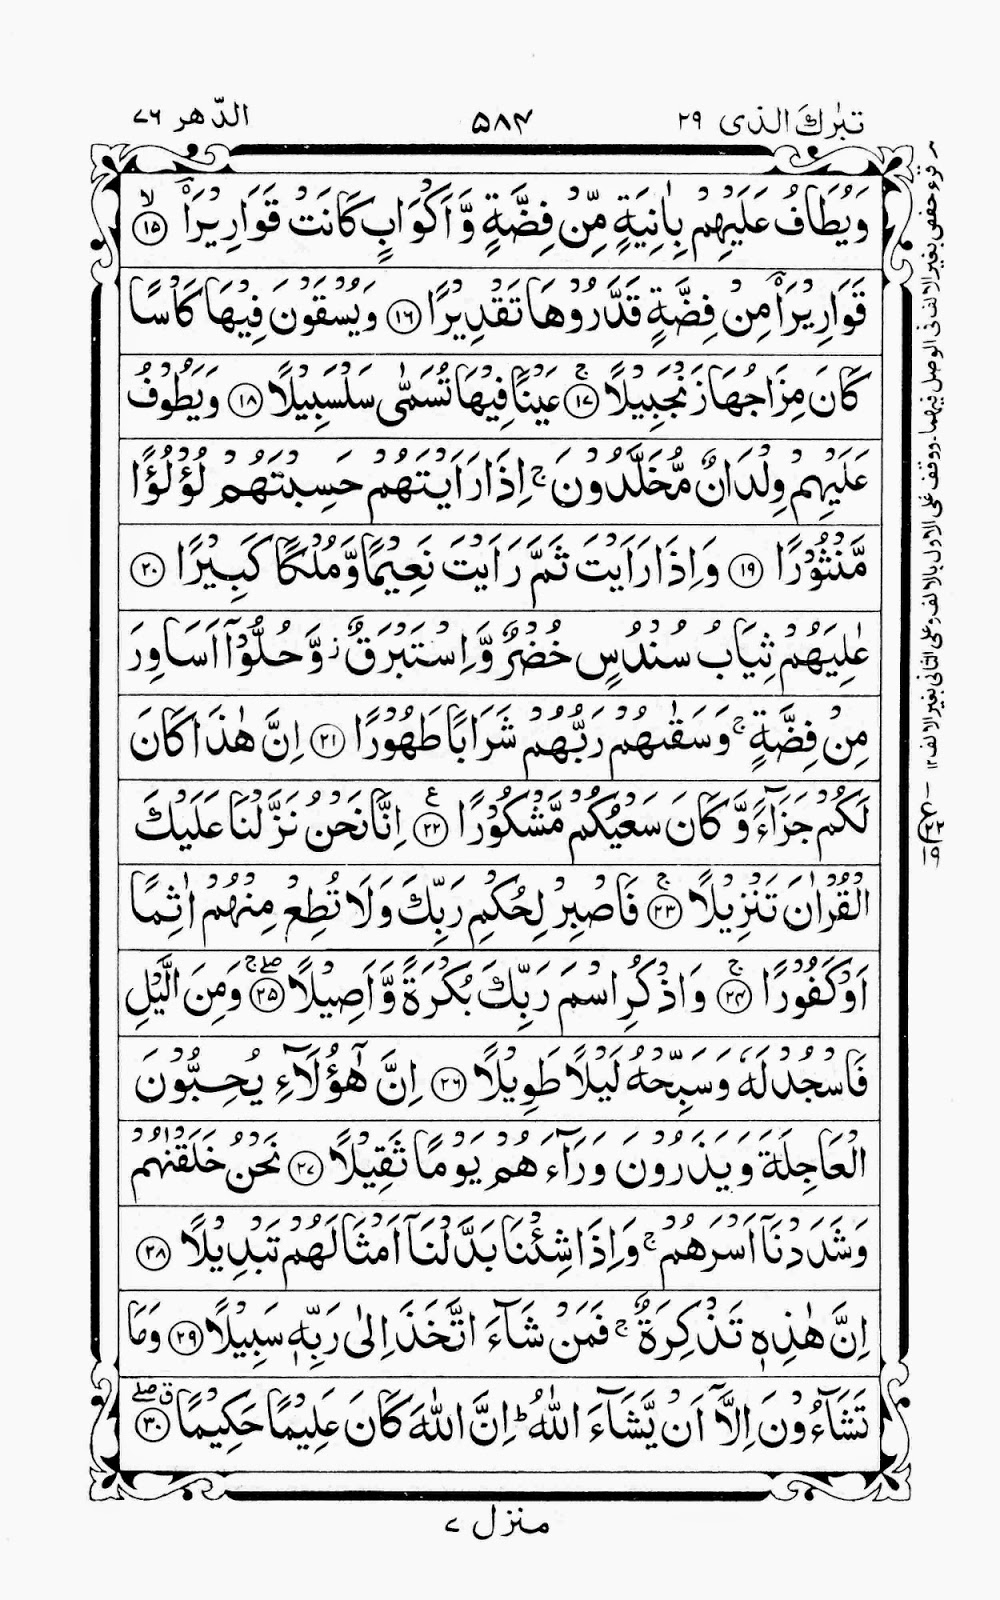 تبٰرك الذی ٢٩
٥٨٤
الدّهر ٧٦
وَيُطَافُ عَلَيْهِمْ بِاٰنِيَةٍ مِّنْ فِضَّةٍ وَّاَكْوَابٍ كَانَتْ قَوَارِيْرَا۠ ۙ﴿١٥﴾
قَوَارِيْرَا۠ مِنْ فِضَّةٍ قَدَّرُوْهَا تَقْدِيْرًا ﴿١٦﴾ وَيُسْقَوْنَ فِيْهَا كَاْسًا
كَانَ مِزَاجُهَا زَنْجَبِيْلًا ۚ﴿١٧﴾ عَيْنًا فِيْهَا تُسَمّٰى سَلْسَبِيْلًا ﴿١٨﴾ وَيَطُوْفُ
عَلَيْهِمْ وِلْدَانٌ مُّخَلَّدُوْنَ ۚ اِذَا رَاَيْتَهُمْ حَسِبْتَهُمْ لُؤْلُؤًا
مَّنْثُوْرًا ﴿١٩﴾ وَاِذَا رَاَيْتَ ثَمَّ رَاَيْتَ نَعِيْمًا وَّمُلْكًا كَبِيْرًا ﴿٢٠﴾
عٰلِيَهُمْ ثِيَابُ سُنْدُسٍ خُضْرٌ وَّاِسْتَبْرَقٌ ز وَّحُلُّوْٓا اَسَاوِرَ
مِنْ فِضَّةٍ ۚ وَسَقٰىهُمْ رَبُّهُمْ شَرَابًا طَهُوْرًا ﴿٢١﴾ اِنَّ هٰذَا كَانَ
لَكُمْ جَزَآءً وَّكَانَ سَعْيُكُمْ مَّشْكُوْرًا ﴿٢٢﴾ع اِنَّا نَحْنُ نَزَّلْنَا عَلَيْكَ
الْقُرْاٰنَ تَنْزِيْلًا ۚ﴿٢٣﴾ فَاصْبِرْ لِحُكْمِ رَبِّكَ وَلَا تُطِعْ مِنْهُمْ اٰثِمًا
اَوْ كَفُوْرًا ۚ﴿٢٤﴾ وَاذْكُرِ اسْمَ رَبِّكَ بُكْرَةً وَّاَصِيْلًا ۖۚ﴿٢٥﴾ وَمِنَ الَّيْلِ
فَاسْجُدْ لَهٗ وَسَبِّحْهُ لَيْلًا طَوِيْلًا ﴿٢٦﴾ اِنَّ هٰٓؤُلَآءِ يُحِبُّوْنَ
الْعَاجِلَةَ وَيَذَرُوْنَ وَرَآءَهُمْ يَوْمًا ثَقِيْلًا ﴿٢٧﴾ نَحْنُ خَلَقْنٰهُمْ
وَشَدَدْنَآ اَسْرَهُمْ ۚ وَاِذَا شِئْنَا بَدَّلْنَآ اَمْثَالَهُمْ تَبْدِيْلًا ﴿٢٨﴾
اِنَّ هٰذِهٖ تَذْكِرَةٌ ۚ فَمَنْ شَآءَ اتَّخَذَ اِلٰى رَبِّهٖ سَبِيْلًا ﴿٢٩﴾ وَمَا
تَشَآءُوْنَ اِلَّآ اَنْ يَّشَآءَ اللّٰهُ ؕ اِنَّ اللّٰهَ كَانَ عَلِيْمًا حَكِيْمًا ۖق﴿٣٠﴾
منزل ٧
قرء حفص بغیر الالف فی الوصل فیهما۔ ووقف علی الاول بالالف وعلی الثانی بغیر الالف ١٢
ع ٢٢